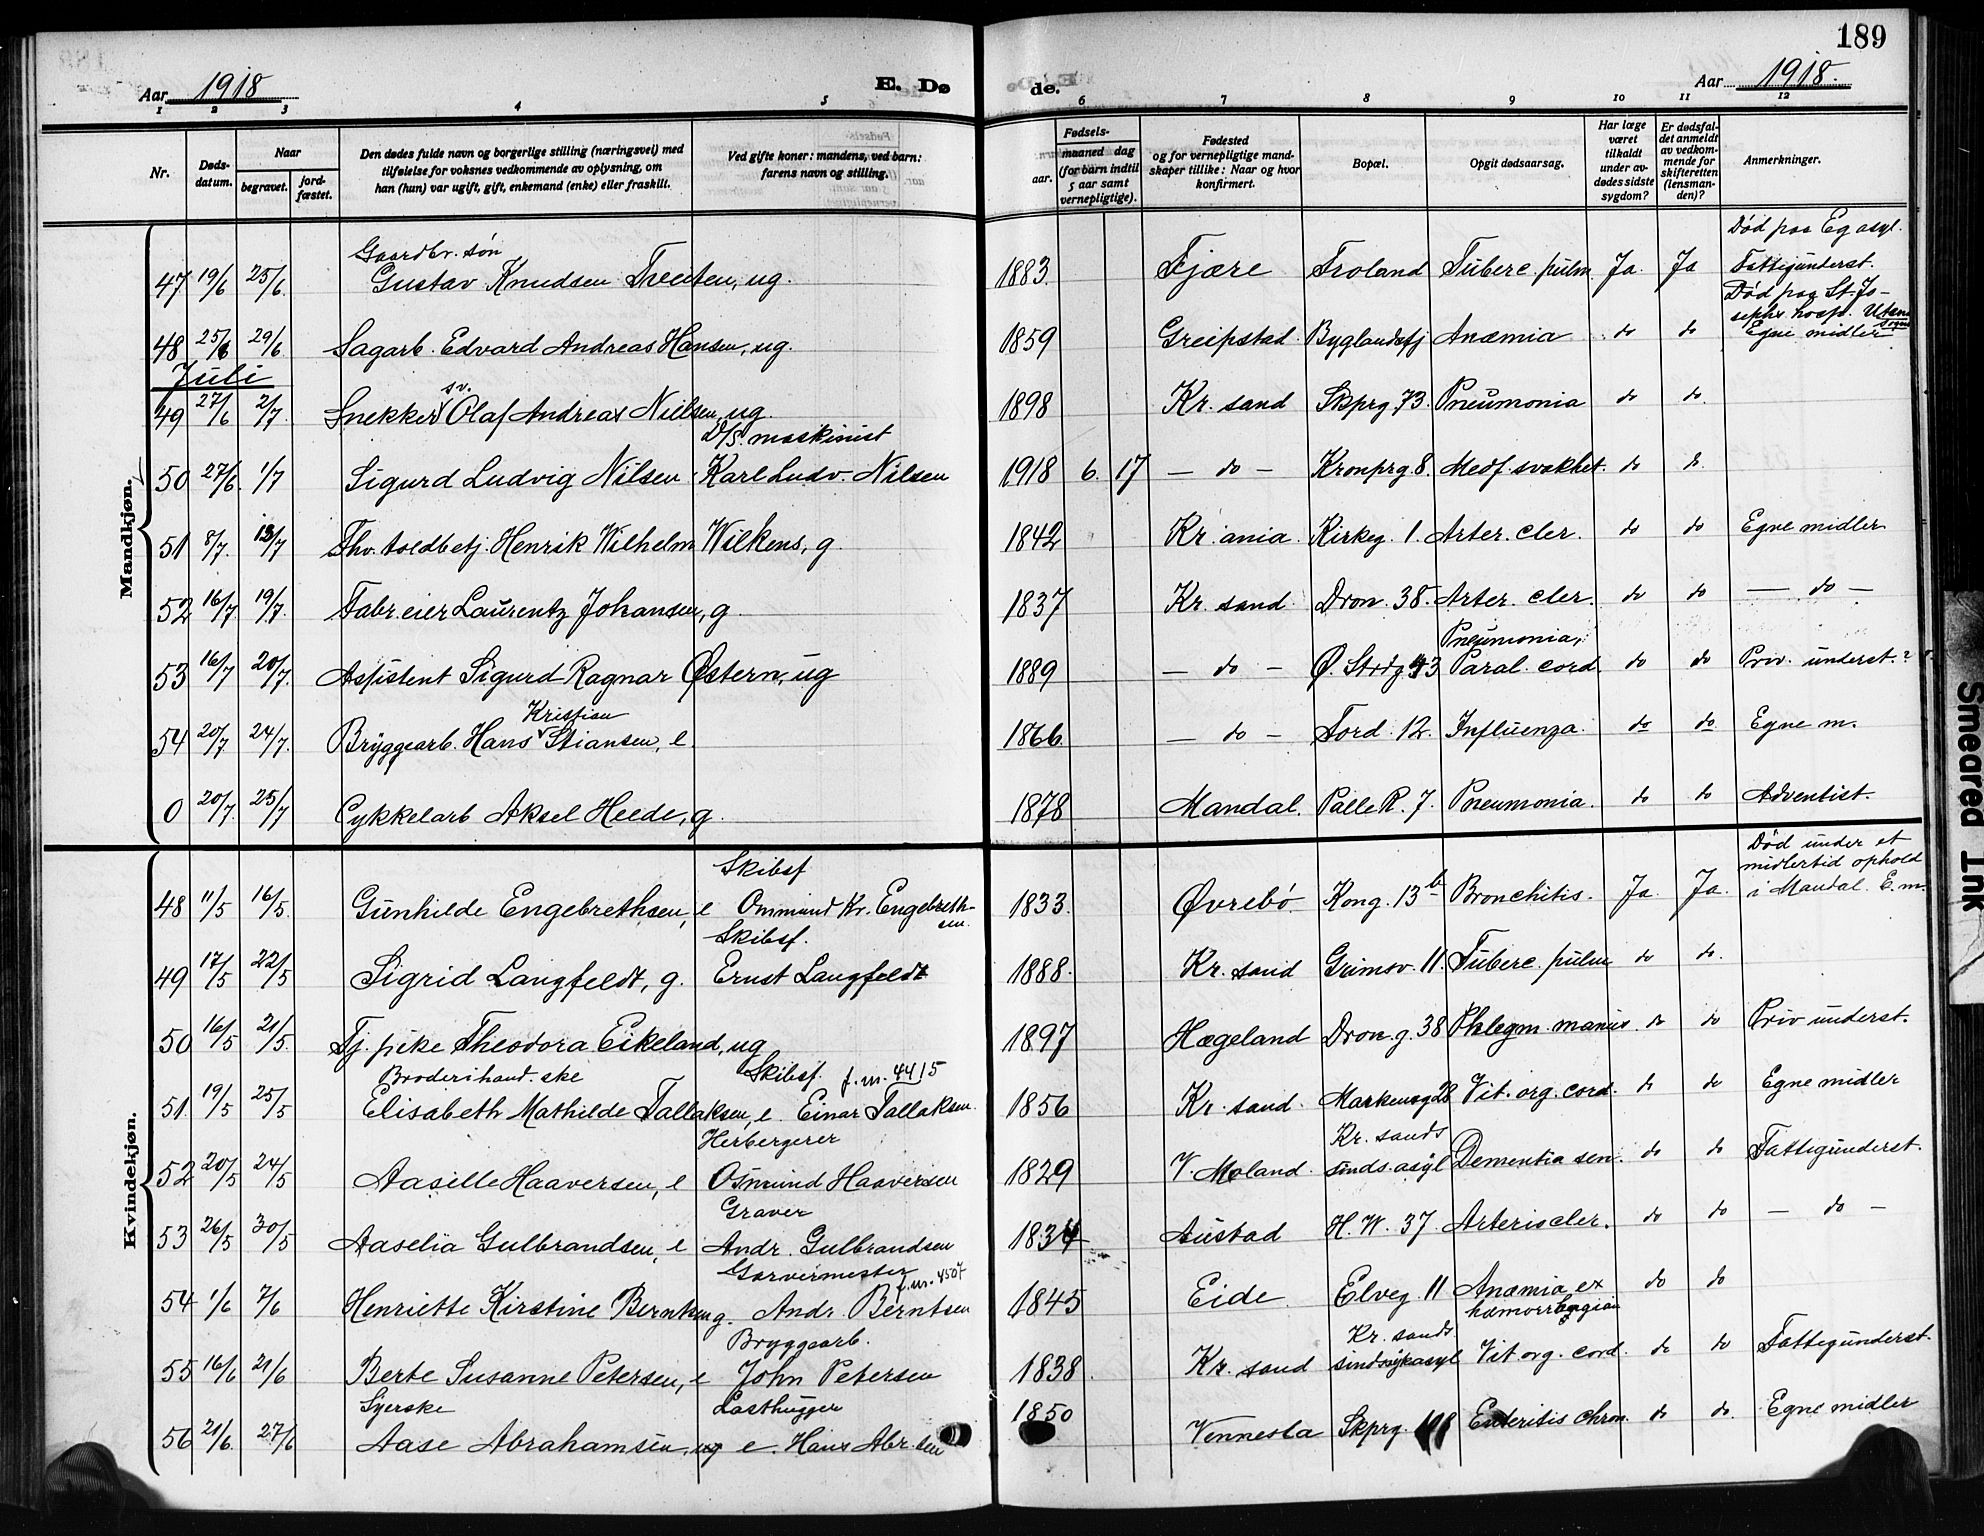 189
Aar 1918 E. Dø de. Aar 1918.
1 2 3 4 5 6 7 8 9 10 11 12
Nr. Døds-datum. Naar begravet. jord-fæstet. Den dødes fulde navn og borgerlige stilling (næringsvei) med tilføielse for voksnes vedkommende av oplysning, om han (hun) var ugift, gift, enkemand (enke) eller fraskilt. Ved gifte koner: mandens, ved barn: farens navn og stilling. Fødsels- aar. maaned dag (for barn indtil 5 aar samt vernepligtige). Fødested og for vernepligtige mand-skaper tillike: Naar og hvor konfirmert. Bopæl. Opgit dødsaarsag. Har læge været tilkaldt under av-dødes sidste sygdom? Er dødsfal-det anmeldt av vedkom-mende for skifteretten (lensman-den)? Anmerkninger.
Mandkjøn.
47 19/6 25/6. Gaardbr. søn Gustav Knudsen Treeten, ug. 1883. Fjære Froland Tuberc. pulm. Ja. Ja Død paa Eg asyl. Fattigunderst.
48 25/6 29/6. Sagarb. Edvard Andreas Hansen, ug. 1859 Greipstad Byglandsfj Anæmia do do Død paa St. Jo-sephs hosp. Utenb sogns Egne midler
Juli
49 27/6 2/7. Snekker sv. Olaf Andreas Nielsen, ug. 1898 Kr. sand Skprg 73. Pneumonia do do.
50 27/6. 1/7 Sigurd Ludvig Nilsen D/S. maskinist Karl Ludv. Nilsen 1918 6. 17 — do — Kronprg. 8. Medf. svakhet. do do
51 8/7. 13/7 Fhv. toldbetj. Henrik Wilhelm Wilkens, g. 1842 Kr. ania. Kirkeg. 1. Arter. cler. do do Egne midler
52 16/7 19/7. Fabr. eier Laurentz Johansen, g 1837 Kr. sand. Dron. 38. Arter. cler. do do — do —
53 16/7 20/7. Assistent Sigurd Ragnar Østern, ug 1889 — do — Ø. Strdg 43 Pneumonia, Paral. cord do do Priv. underst.
54 20/7 24/7. Bryggearb. Hans Kristian Stiansen, e. 1866. — do — Tord. 12. Influenza. do do. Egne m.
0 20/7. 25/7 Cykkelarb Aksel Heede, g. 1878 Mandal. Palle R. 7. Pneumonia. do do Adventist.
Kvindekjøn.
48 11/5 16/5. Gunhilde Engebrethsen, e Skibsf Ommund Kr. Engebreth-sen. 1833. Øvrebö. Kong. 13 b Bronchitis. Ja. Ja. Død under et midlertid ophold i Mandal. E. m.
49 17/5 22/5 Sigrid Langfeldt, g. Skibsf. Ernst Langfeldt 1888. Kr. sand Grimsv. 11. Tuberc. pulm do do.
50 16/5 21/5. Tj. pike Theodora Eikeland, ug 1897 Hægeland Dron. g. 38 Phlegm. manus do do Priv underst.
51. 19/5 25/5 Broderihand. ske Elisabeth Mathilde Tallaksen, e. Skibsf. f. m. 4415 Einar Tallaksen. 1856 Kr. sand. Markensg 28 Vit. org. cord. do do Egne midler
52 20/5 24/5 Aasille Haaversen, e Herbergerer Osmund Haaversen 1829 V. Moland. Kr. sands sinds. asyl Dementia sen. do do Fattigunderst.
53 26/5 30/5 Aaselia Gulbrandsen, e Graver Andr. Gulbrandsen 1834 Austad H. W. 37. Arterioscler. do do — do —
54 1/6 7/6 Henriette Kirstine Berntsen g. Garvermester f. m. 4507 Andr. Berntsen 1845 Eide Elveg. 11 Anæmia, ex hæmorrhagian do do
55 16/6 21/6 Berte Susanne Petersen, e Bryggearb. John Petersen 1838. Kr. sand Kr. sands sindssykasyl Vit org. cord. do do Fattigunderst.
56 21/6. 27/6 Syerske Aase Abrahamsen, e. Losthugger Hans Abr. sen 1850 Vennesla Skprg. Enteritis chron. do do. Egne midler
Smeared Ink